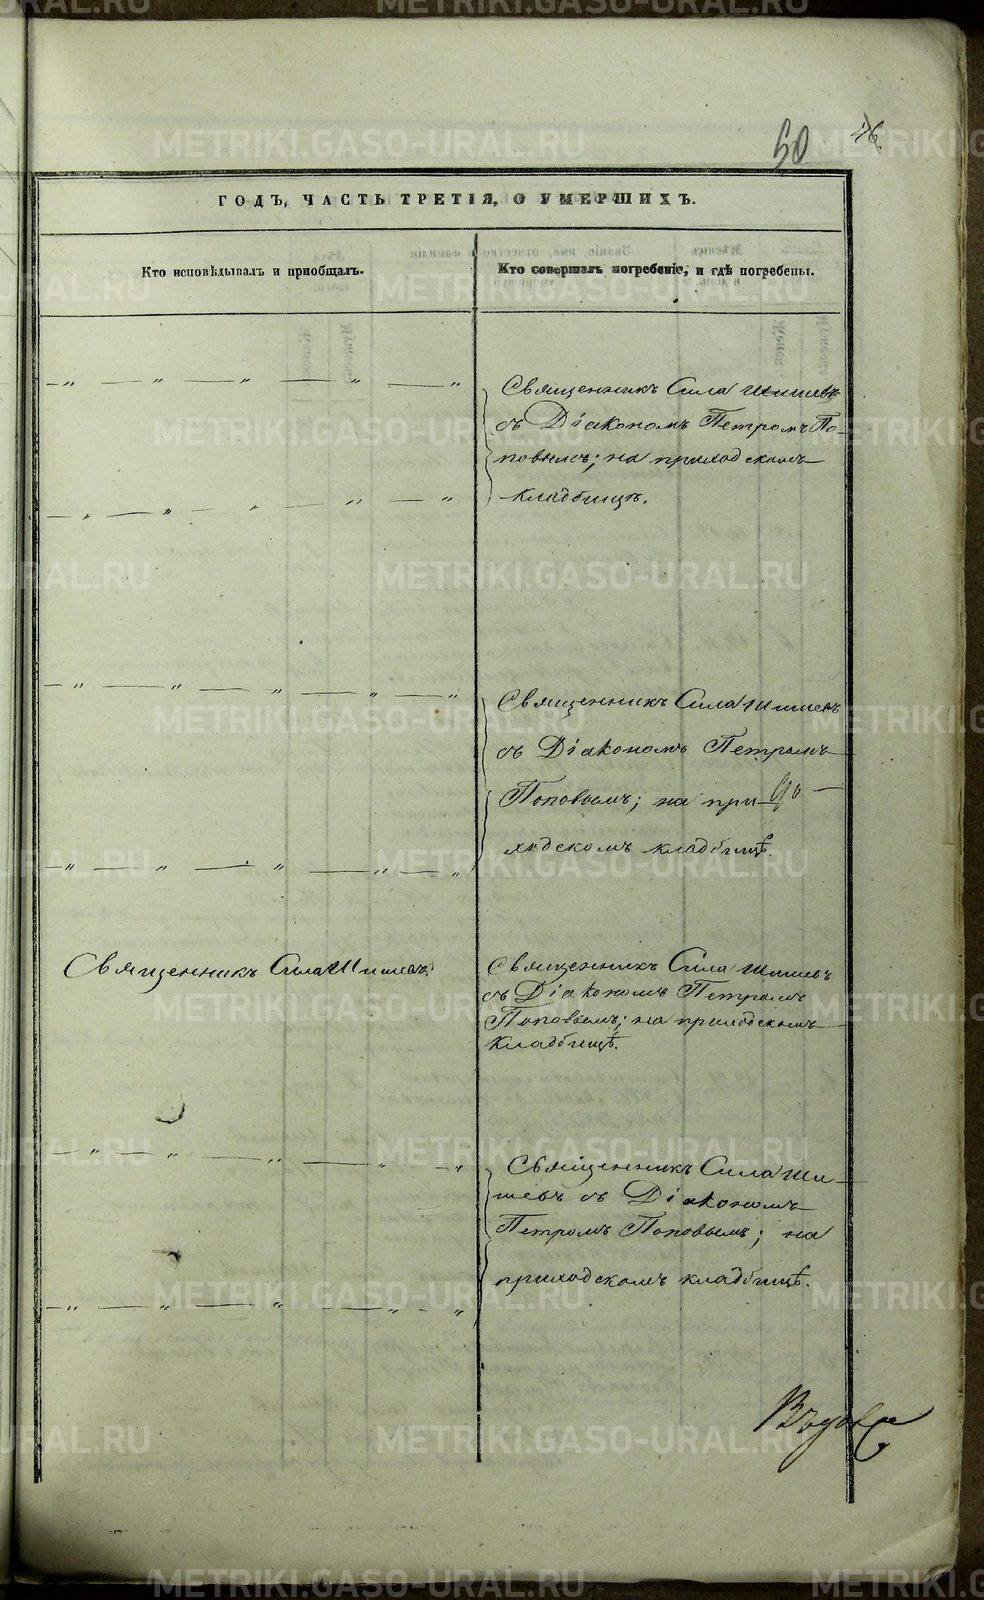 METRIKI.GASO-URAL.RU
50
ГОДЪ, ЧАСТЬ ТРЕТІЯ, О УМЕРШИХЪ.
Кто исповѣдывалъ и приобщалъ.
Кто совершалъ погребеніе, и гдѣ погребены.
Священникъ Сила Шишевъ
съ Діакономъ Петромъ По-
повымъ; на приходскомъ
кладбищѣ.
Священникъ Сила Шишевъ
съ Діакономъ Петромъ
Поповымъ; на при-
ходскомъ кладбищѣ.
Священникъ Сила Шишевъ.
Священникъ Сила Шишевъ
съ Діакономъ Петромъ
Поповымъ; на приходскомъ
кладбищѣ.
Священникъ Сила Ши-
шевъ съ Діакономъ
Петромъ Поповымъ; на
приходскомъ кладбищѣ.